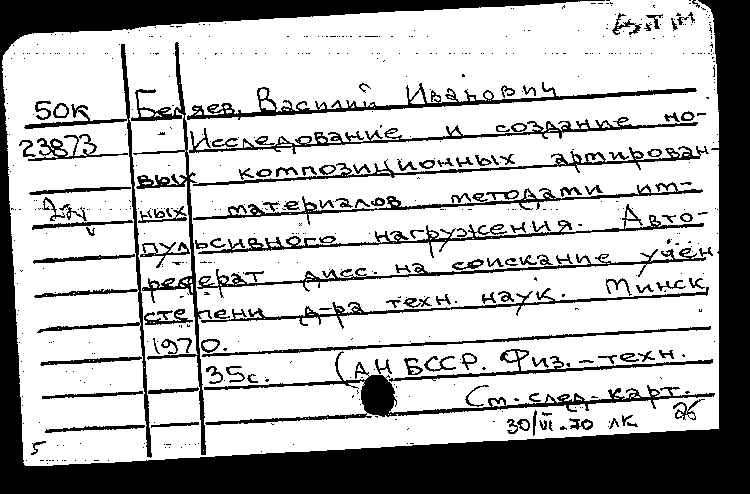 50к Беляев, Василий Иванович
23873 Исследование и создание но-
вых композиционных армирован-
ных материалов методами им-
пульсивного нагружения. Авто-
реферат дисс. на соискание учен.
степени д-ра техн. наук. Минск,
1970.
35с. (АН БССР. Физ.-техн.
См. след. карт.
30/VI-70 ЛК 26
5